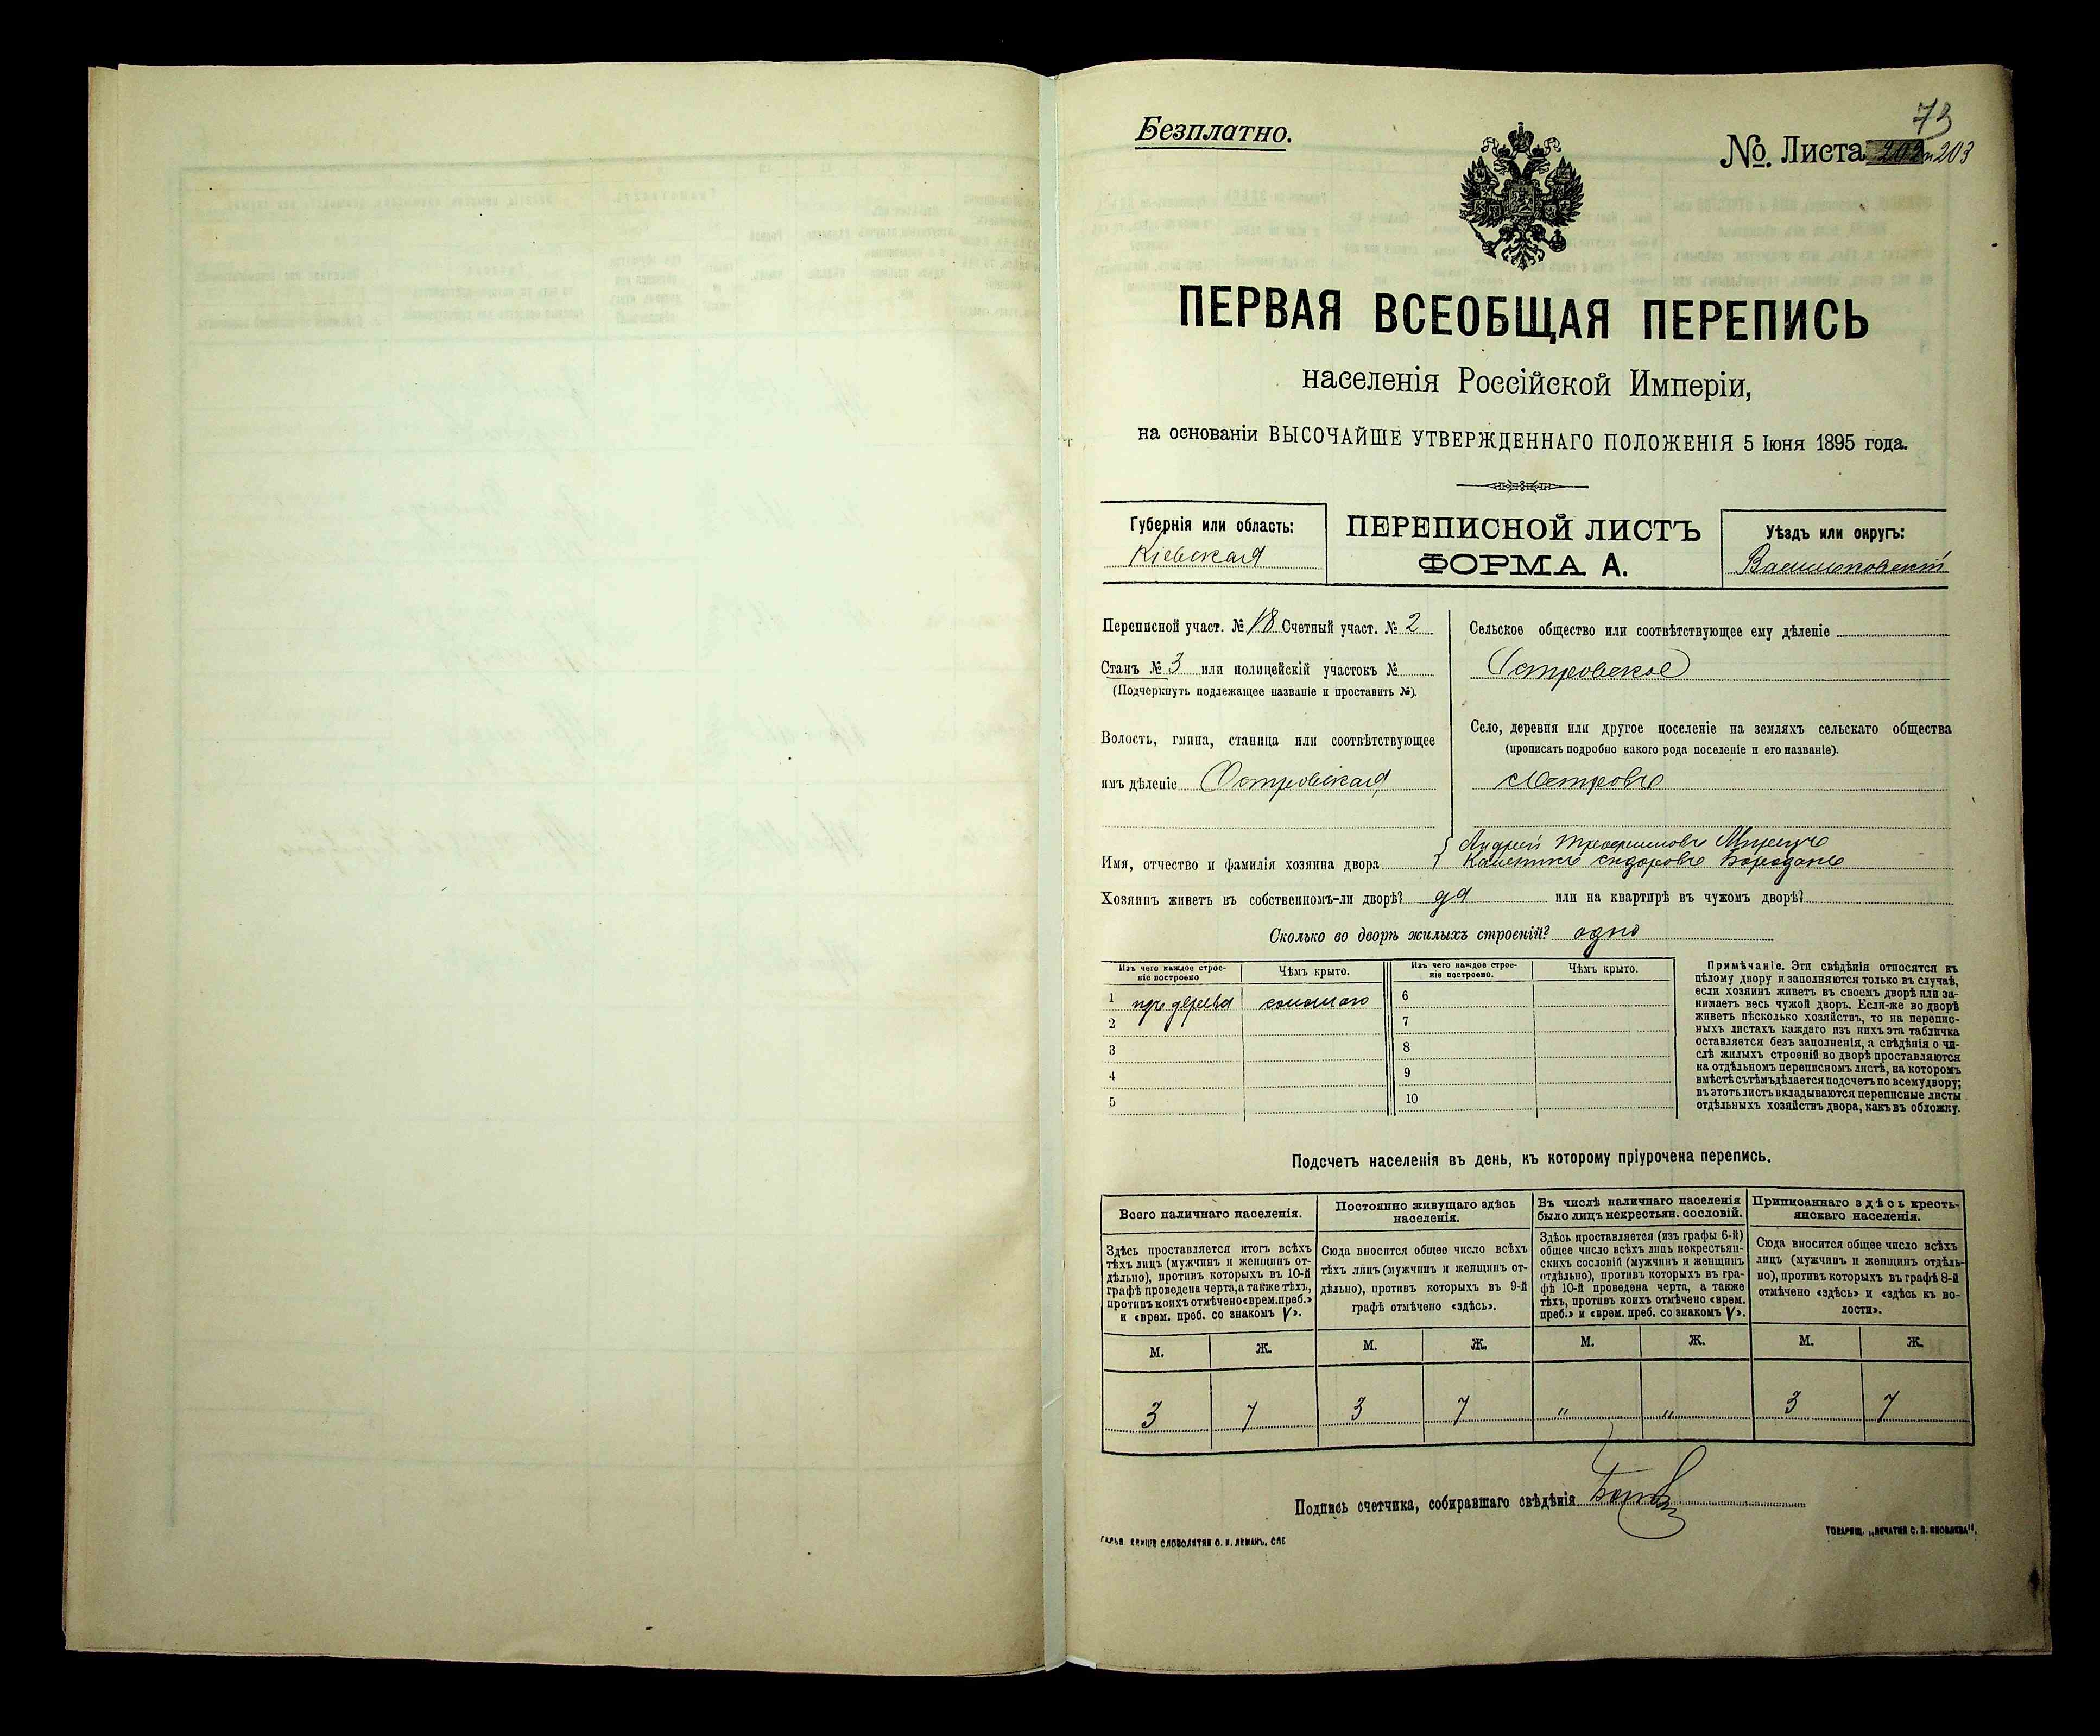 73
Безплатно.
№. Листа 202 и 203
ПЕРВАЯ ВСЕОБЩАЯ ПЕРЕПИСЬ
населенія Россійской Имперіи,
на основаніи ВЫСОЧАЙШЕ УТВЕРЖДЕННАГО ПОЛОЖЕНІЯ 5 Іюня 1895 года.
Губернія или область:
Кіевская
ПЕРЕПИСНОЙ ЛИСТЪ
ФОРМА А.
Уѣздъ или округъ:
Васильковскій
Переписной участ. № 18 Счетный участ. № 2
Станъ № 3 или полицейскій участокъ №
(Подчеркнуть подлежащее названіе и проставить №).
Волость, гмина, станица или соотвѣтствующее
имъ дѣленіе Островская
Сельское общество или соотвѣтствующее ему дѣленіе
Островское
Село, деревня или другое поселеніе на земляхъ сельскаго общества
(прописать подробно какого рода поселеніе и его названіе).
с Островъ
Имя, отчество и фамилія хозяина двора
Андрей Трофимовъ
Калениkъ Сидоровъ Бороданъ
Хозяинъ живетъ въ собственномъ-ли дворѣ? да или на квартирѣ въ чужомъ дворѣ?
Сколько во дворѣ жилыхъ строеній? одно
Изъ чего каждое строеніе построено
Чѣмъ крыто.
Изъ чего каждое строеніе построено.
Чѣмъ крыто.
1 изъ дерева соломою 6
2 7
3 8
4 9
5 10
Примѣчаніе. Эти свѣдѣнія относятся къ
цѣлому двору и заполняются только въ случаѣ,
если хозяинъ живетъ въ своемъ дворѣ или за-
нимаетъ весь чужой дворъ. Если-же во дворѣ
живетъ нѣсколько хозяйствъ, то на перепис-
ныхъ листахъ каждаго изъ нихъ эта табличка
оставляется безъ заполненія, а свѣдѣнія о чи-
слѣ жилыхъ строеній во дворѣ проставляются
на отдѣльномъ переписномъ листѣ, на которомъ
вмѣстѣ съ тѣмъ дѣлается подсчетъ по всему двору;
въ этотъ листъ вкладываются переписные листы
отдѣльныхъ хозяйствъ двора, какъ въ обложку.
Подсчетъ населенія въ день, къ которому пріурочена перепись.
Всего наличнаго населенія.
Здѣсь проставляется итогъ всѣхъ
тѣхъ лицъ (мужчинъ и женщинъ от-
дѣльно), противъ которыхъ въ 10-й
графѣ проведена черта, а также тѣхъ,
противъ коихъ отмѣчено «врем. преб.»
и «врем. преб. со знакомъ V».
Постоянно живущаго здѣсь
населенія.
Сюда вносится общее число всѣхъ
тѣхъ лицъ (мужчинъ и женщинъ от-
дѣльно), противъ которыхъ въ 9-й
графѣ отмѣчено «здѣсь».
Въ числѣ наличнаго населенія
было лицъ некрестьян. сословій.
Здѣсь проставляется (изъ графы 6-й)
общее число всѣхъ лицъ некрестьян-
скихъ сословій (мужчинъ и женщинъ
отдѣльно), противъ которыхъ въ гра-
фѣ 10-й проведена черта, а также
тѣхъ, противъ коихъ отмѣчено «врем.
преб.» и «врем. преб. со знакомъ V».
Приписаннаго здѣсь кресть-
янскаго населенія.
Сюда вносится общее число всѣхъ
лицъ (мужчинъ и женщинъ отдѣль-
но), противъ которыхъ въ графѣ 8-й
отмѣчено «здѣсь» и «здѣсь къ во-
лости».
М. Ж. М. Ж. М. Ж. М. Ж.
3 7 3 7 „ „ 3 7
Подпись счетчика, собиравшаго свѣдѣнія
СЛОВОЛИТНИ О. И. ЛЕМАНЪ, СПБ
ТОВАРИЩ. „ПЕЧАТНЯ С. П. ЯКОВЛЕВА".